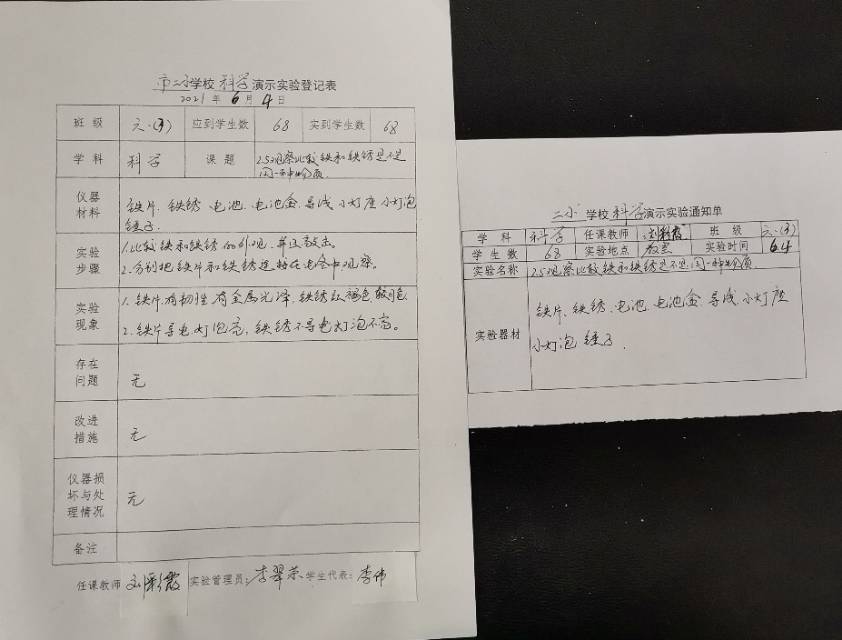 市二小学校科学演示实验登记表
2021年6月4日
班级 六.(3) 应到学生数 68 实到学生数 68
学科 科学 课题 25观察比较铁和铁锈是不是
同一种物质
仪器
材料
铁片、铁锈、电池、电池盒、导线、小灯座、小灯泡
锤子
实验
步骤
1.比较铁和铁锈的外观,并且敲击。
2.分别把铁片和铁锈连接在电路中观察。
实验
现象
1.铁片有韧性有金属光泽,铁锈红褐色
2.铁片导电灯泡亮,铁锈不导电灯泡不亮。
存在
问题
无
改进
措施
无
仪器损
坏与处
理情况
无
备注
任课教师 刘彩霞 实验管理员:李翠荣 学生代表:李伟
二小学校科学演示实验通知单
学科 科学 任课教师 刘彩霞 班级 六.(3)
学生数 68 实验地点 教室 实验时间 6.4
实验名称 25观察比较铁和铁锈是不是同一种物质
实验器材
铁片、铁锈、电池、电池盒、导线、小灯座
小灯泡 锤子.